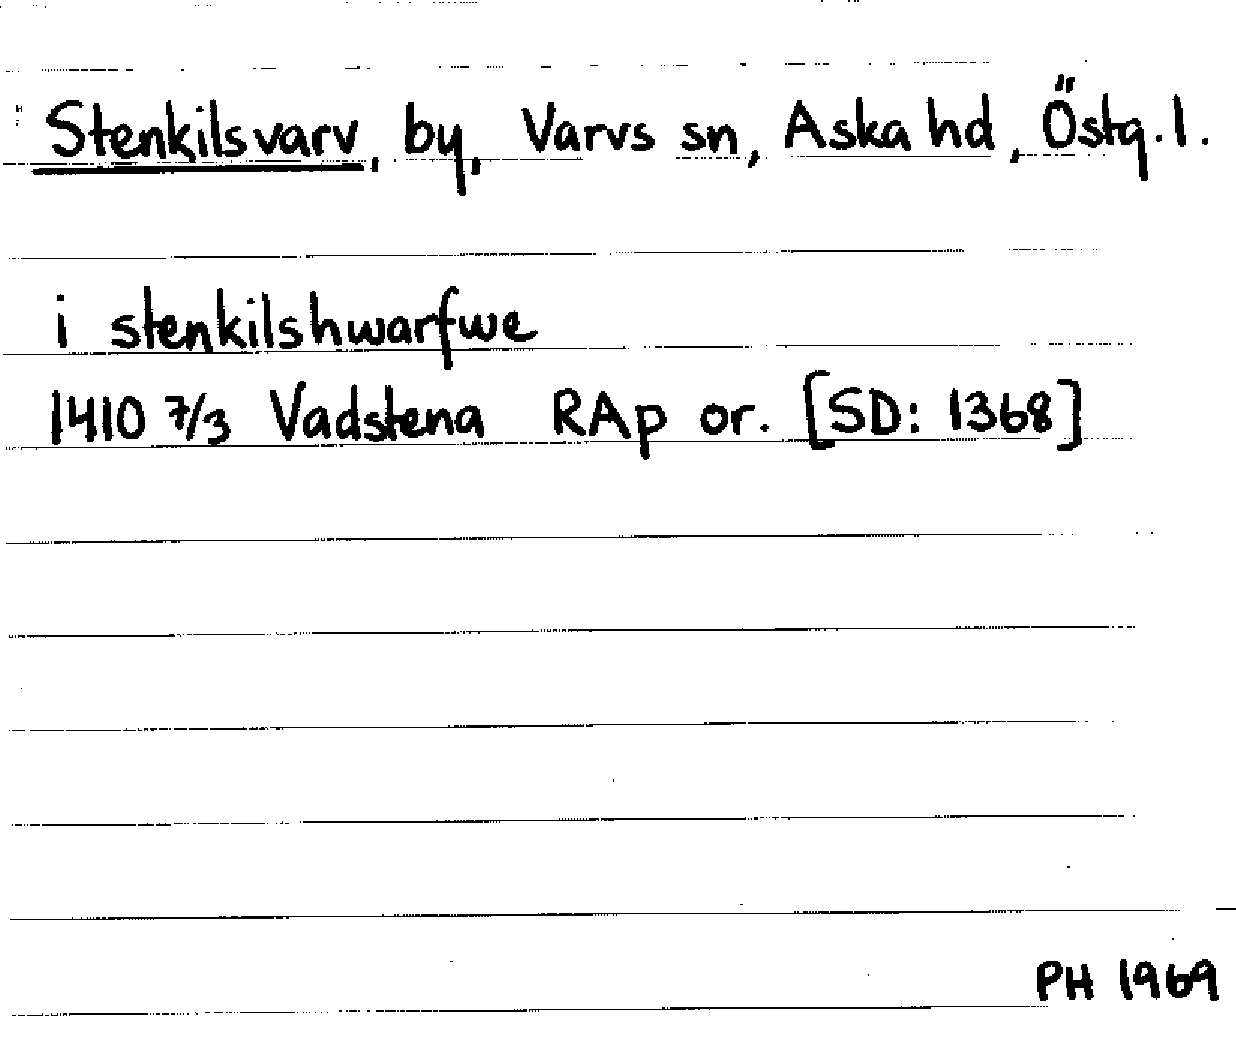 Stenkilsvarv, by, Varvs sn, Aska hd, Östg. l.
i stenkilshwarfwe
1410 7/3 Vadstena RAp or. [SD: 1368]
PH 1969